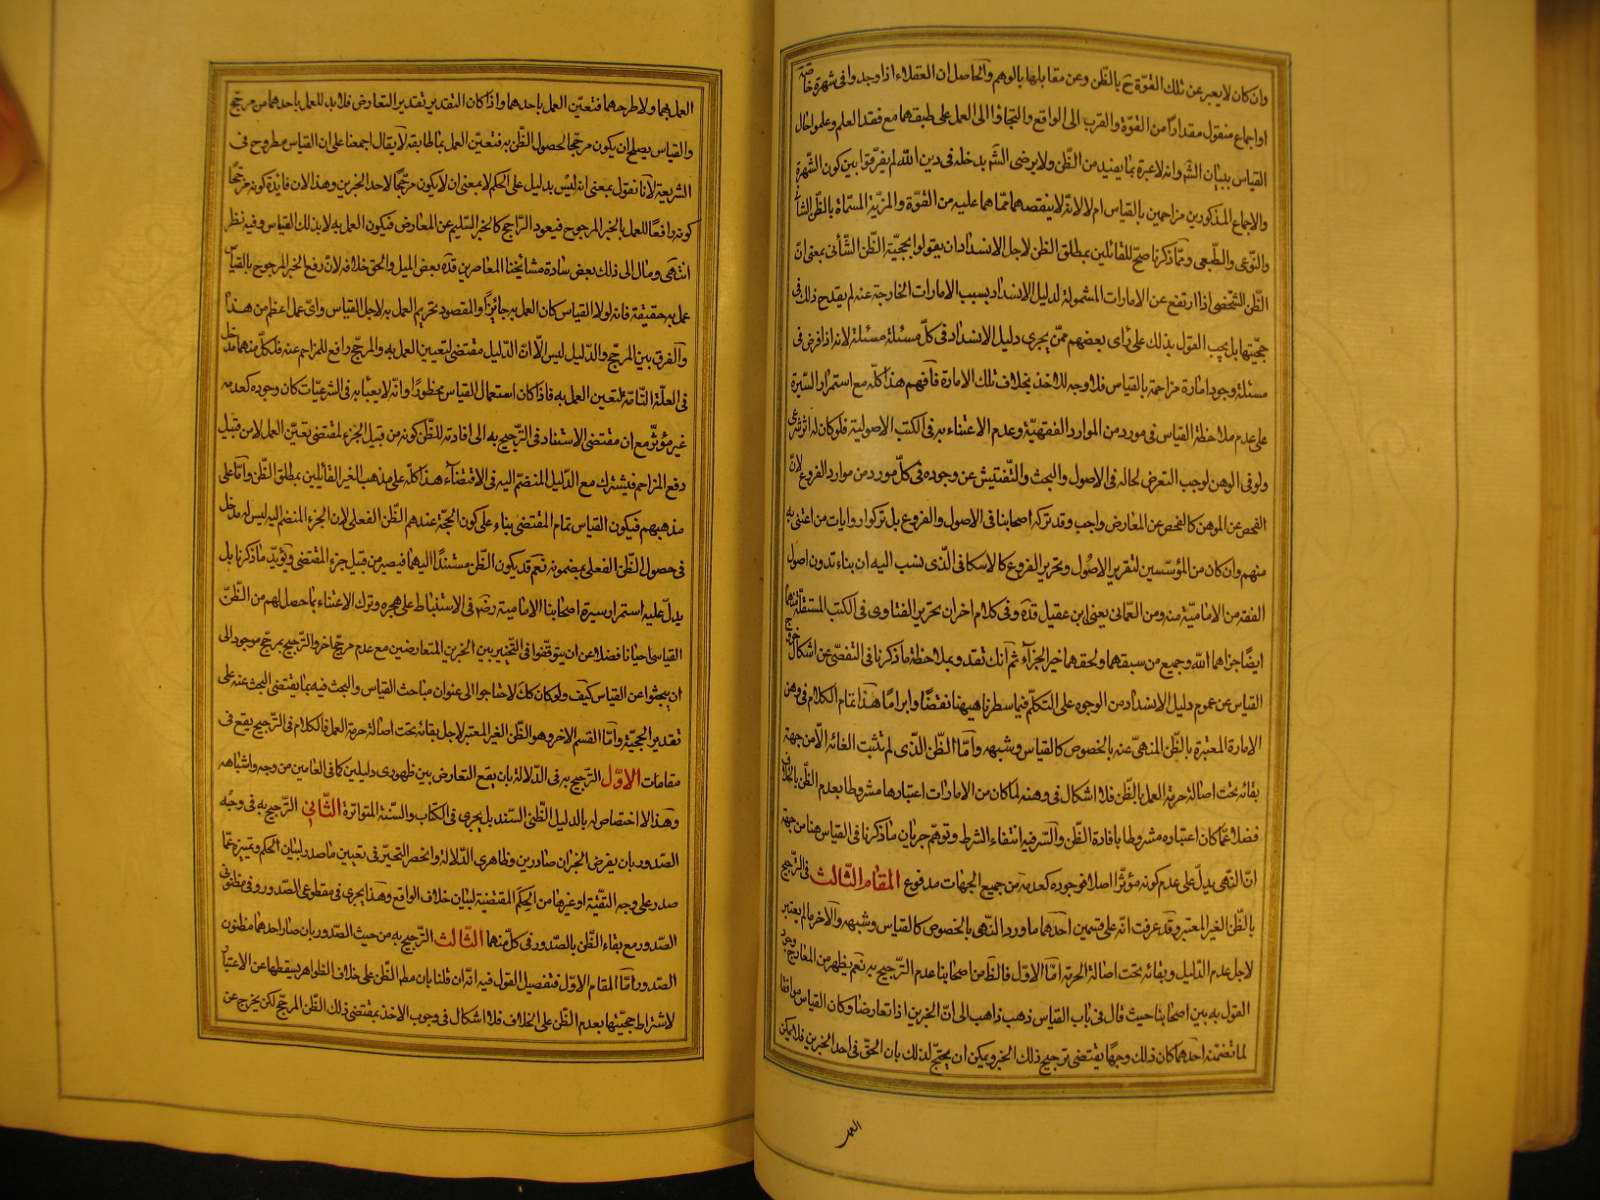 وان كان لا يعبر عن تلك القوة ح بالظن وعن مقابلها بالوهم والحاصل ان العقلاء اذا وجدوا فى شهرة خاصة
او اجماع منقول مقدارا من القوة والقرب الى الواقع والتجاؤا الى العمل على طبقهما مع فقد العلم وعلموا حال
القياس ببيان الش وانه لا عبرة بما يفيد من الظن ولا يرضى الش بدخله فى دين الله لم يفرقوا بين كون الشهرة
والاجماع المذكورين مزاحمين بالقياس ام لا لانه لا ينقصهما عما هما عليه من القوة والمزية المسماة بالظن الشأنى
والنوعى والطبعى ومما ذكرنا صح للقائلين بمطلق الظن لاجل الانسداد ان يقولوا بحجية الظن الشأنى بمعنى ان
الظن الشخصى اذا ارتفع عن الامارات المشمولة لدليل الانسداد بسبب الامارات الخارجة عنه لم يقدح ذلك فى
حجيتها بل يجب القول بذلك على راى بعضهم ممن يجرى دليل الانسداد فى كل مسئلة مسئلة لانه اذا فرض فى
مسئلة وجود امارة مزاحمة بالقياس فلا وجه للاخذ بخلاف تلك الامارة فافهم هذا كله مع استمرار السيرة
على عدم ملاحظة القياس فى مورد من الموارد الفقهية وعدم الاعتناء به فى الكتب الاصولية فلو كان له اثر شرعى
ولو فى الوهن لوجب التعرض لحاله فى الاصول والبحث والتفتيش عن وجوده فى كل مورد من موارد الفروع لان
الفحص عن الموهن كالفحص عن المعارض واجب وقد تركه اصحابنا فى الاصول والفروع بل تركوا روايات من اعتنى به
منهم وان كان من المؤسسين لتقرير الاصول وتحرير الفروع كالاسكافى الذى نسب اليه ان بناء تدوين اصول
الفقه من الامامية منه ومن العمانى يعنى ابن عقيل قده وفى كلام اخر ان تحرير الفتاوى فى الكتب المستقلة منهما
ايضا جزاهما الله وجميع من سبقهما ولحقهما خير الجزاء ثم انك تقدر بملاحظة ما ذكرنا فى التفصى عن اشكال خروج
القياس عن عموم دليل الانسداد من الوجوه على التكلم فيما سطرنا هيهنا نقضا وابراما هذا تمام الكلام فى وهن
الامارة المعتبرة بالظن المنهى عنه بالخصوص كالقياس وشبهه واما الظن الذى لم تثبت الغائه الا من جهة
بقائه تحت اصالة حرمة العمل بالظن فلا اشكال فى وهنه لما كان من الامارات اعتبارها مشروطا بعدم الظن بالخلاف
فضلا عما كان اعتباره مشروطا بافادة الظن والسر فيه انتفاء الشرط وتوهم جريان ما ذكرنا فى القياس هنا من جهة
ان النهى يدل على عدم كونه مؤثرا اصلا فوجوده كعدمه من جميع الجهات مدفوع المقام الثالث فى الترجيح
بالظن الغير المعتبر وقد عرفت انه على قسمين احدهما ما ورد النهى بالخصوص كالقياس وشبهه والاخر ما لم يعتبر
لاجل عدم الدليل وبقائه تحت اصالة الحرمة اما الاول فالظ من اصحابنا عدم الترجيح به نعم يظهر من المعارج وجود
القول به بين اصحابنا حيث قال فى باب القياس ذهب ذاهب الى ان الخبرين اذا تعارضا وكان القياس موافقا
لما تضمنه احدهما كان ذلك وجها يقتضى ترجيح ذلك الخبر ويمكن ان يحتج لذلك بان الحق فى احد الخبرين فلا يمكن
العمل
العمل بهما ولا طرحهما فتعين العمل باحدهما واذا كان التقدير تقدير التعارض فلا بد للعمل باحدهما من مرجح
والقياس يصلح ان يكون مرجحا لحصول الظن به فتعين العمل بما طابقه لا يقال اجمعنا على ان القياس مطروح فى
الشريعة لانا نقول بمعنى انه ليس بدليل على الحكم لا بمعنى ان لا يكون مرجحا لاحد الخبرين وهذا لان فائدة كونه مرجحا
كونه دافعا للعمل بالخبر المرجوح فيعود الراجح كالخبر السليم عن المعارض فيكون العمل به لا بذلك القياس وفيه نظر
انتهى ومال الى ذلك بعض سادة مشايخنا المعاصرين قده بعض الميل والحق خلافه لان رفع الخبر المرجوح بالقياس
عمل به حقيقة فانه لولا القياس كان العمل به جائزا والمقصود تحريم العمل به لاجل القياس واى عمل اعظم من هذا
والفرق بين المرجح والدليل ليس الا ان الدليل مقتضى لتعيين العمل به والمرجح رافع للمزاحم عنه فلكل منهما مدخل
فى العلة التامة لتعين العمل به فاذا كان استعمال القياس محظورا وانه لا يعبأ به فى الشرعيات كان وجوده كعدمه
غير مؤثر مع ان مقتضى الاستناد فى الترجيح به الى افادته للظن كونه من قبيل الجزء لمقتضى تعين العمل لا من قبيل
دفع المزاحم فيشترك مع الدليل المنضم اليه فى الاقتضاء هذا كله على مذهب الغير القائلين بمطلق الظن واما على
مذهبهم فيكون القياس تمام المقتضى بناء على كون الحجة عندهم الظن الفعلى لان الجزء المنضم اليه ليس له مدخل
فى حصول الظن الفعلى بمضمونه نعم قد يكون الظن مستندا اليهما فيصير من قبيل جزء المقتضى ويؤيد ما ذكرنا بل
يدل عليه استمرار سيرة اصحابنا الامامية رض فى الاستنباط على هجره وترك الاعتناء بما حصل لهم من الظن
القياسى احيانا فضلا عن ان يتوقفوا فى التخيير بين الخبرين المتعارضين مع عدم مرجح اخر والترجيح بمرجح موجود الى
ان يبحثوا عن القياس كيف ولو كان كك لاحتاجوا الى عنوان مباحث القياس والبحث فيه بما يقتضى البحث عنه على
تقدير الحجية واما القسم الاخر وهو الظن الغير المعتبر لاجل بقائه تحت اصالة حرمة العمل فالكلام فى الترجيح يقع فى
مقامات الاول الترجيح به فى الدلالة بان يقع التعارض بين ظهورى دليلين كما فى العامين من وجه واشباهه
وهذا لا اختصاص له بالدليل الظنى السند بل يجرى فى الكتاب والسنة المتواترة الثانى الترجيح به فى وجه
الصدور بان يفرض الخبران صادرين وظاهرى الدلالة وانحصر التحير فى تعيين ما صدر لبيان الحكم وتميزه عما
صدر على وجه التقية او غيرها من الحكم المقتضية لبيان خلاف الواقع وهذا يجرى فى مقطوعى الصدور وفى مظنونى
الصدور مع بقاء الظن بالصدور فى كل منهما الثالث الترجيح به من حيث الصدور بان صار احدهما مظنون
الصدور اما المقام الاول فتفصيل القول فيه انه ان قلنا بان مطلق الظن على خلاف الظواهر يسقطها عن الاعتبار
لاشتراط حجيتها بعدم الظن على الخلاف فلا اشكال فى وجوب الاخذ بمقتضى ذلك الظن المرجح لكن يخرج عن